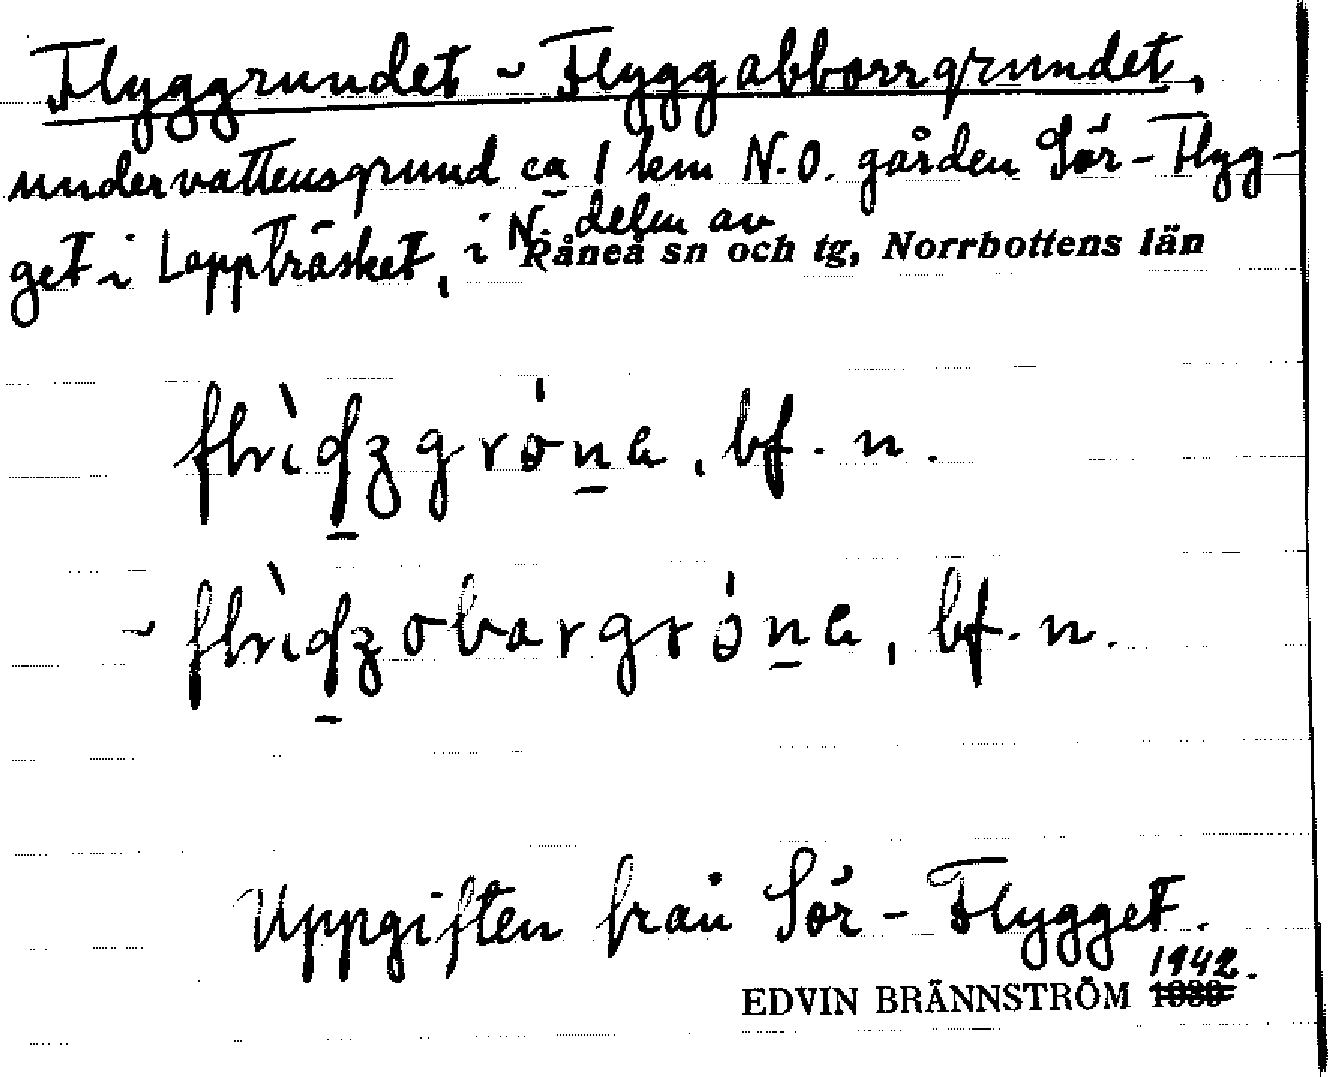 Flyggrundet ~ Flyggabborrgrundet,
undervattensgrund ca 1 km N.O. gården Sör-Flyg-
get i Lappträsket, i N. delen av
Råneå sn och tg, Norrbottens län
bf. n.
~ bf. n.
Uppgiften från Sör-Flygget.
1942.
EDVIN BRÄNNSTRÖM